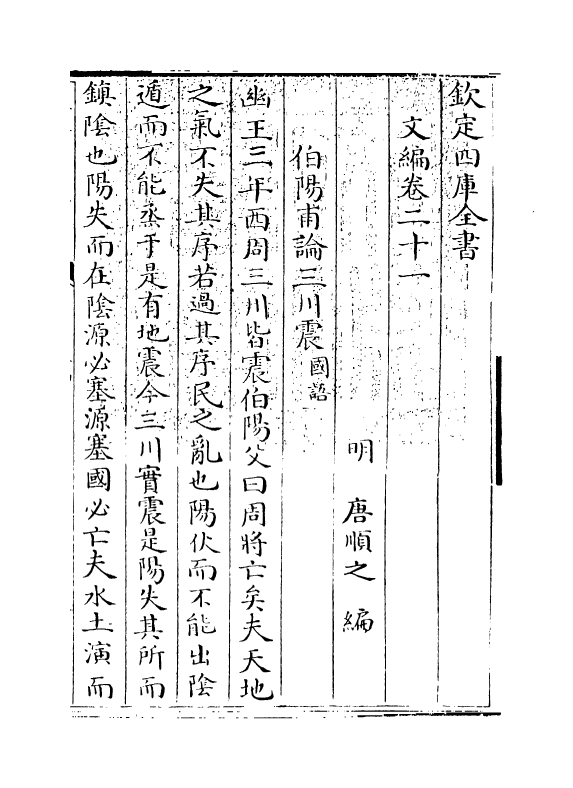 欽定四庫全書
文編卷二十一
明 唐順之 編
伯陽甫論三川震國語
幽王三年西周三川皆震伯陽父曰周將亡矣夫天地
之氣不失其序若過其序民之亂也陽伏而不能出陰
遁而不能烝于是有地震今三川實震是陽失其所而
鎮陰也陽失而在陰源必塞源塞國必亡夫水土演而